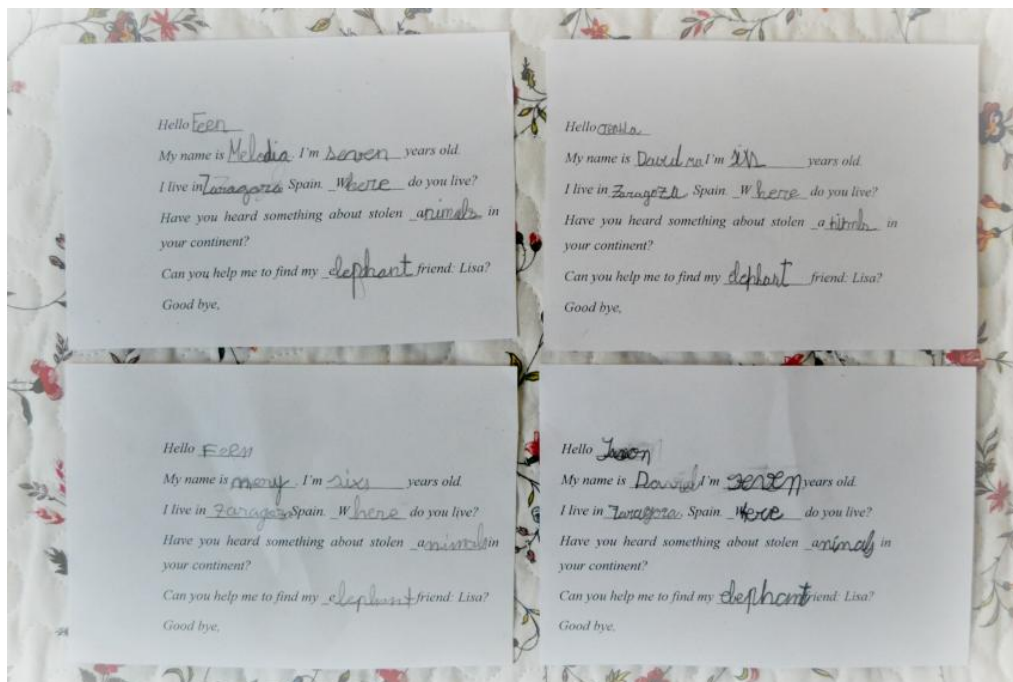 Hello Feen
My name is Melodia. I'm seven years old.
I live in Zaragoza Spain. Where do you live?
Have you heard something about stolen animals in
your continent?
Can you help me to find my elephant friend: Lisa?
Good bye,
Hello
My name is David I'm sixs years old.
I live in Zaragoza, Spain. Where do you live?
Have you heard something about stolen in
your continent?
Can you help me to find my elephant friend: Lisa?
Good bye,
Hello Feen
My name is mery. I'm sixs years old.
I live in Zaragoza Spain. Where do you live?
Have you heard something about stolen animals in
your continent?
Can you help me to find my elephant friend: Lisa?
Good bye,
Hello
My name is David I'm seven years old.
I live in Zaragoza, Spain. Where do you live?
Have you heard something about stolen animals in
your continent?
Can you help me to find my elephant friend: Lisa?
Good bye,